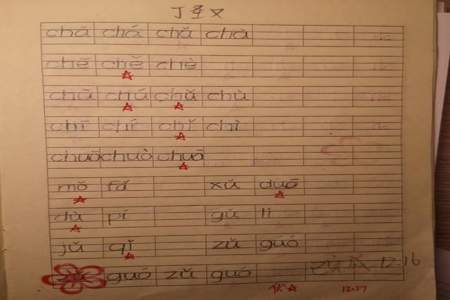 chā chá chǎ chà
chē chě chè
chū chú chǔ chù
chī chí chǐ chì
chuō chuò chuō
mō fá xǔ duō
dà pí gǔ lì
jǔ qǐ zǔ guó
guó zǔ guó
12.16
12.17